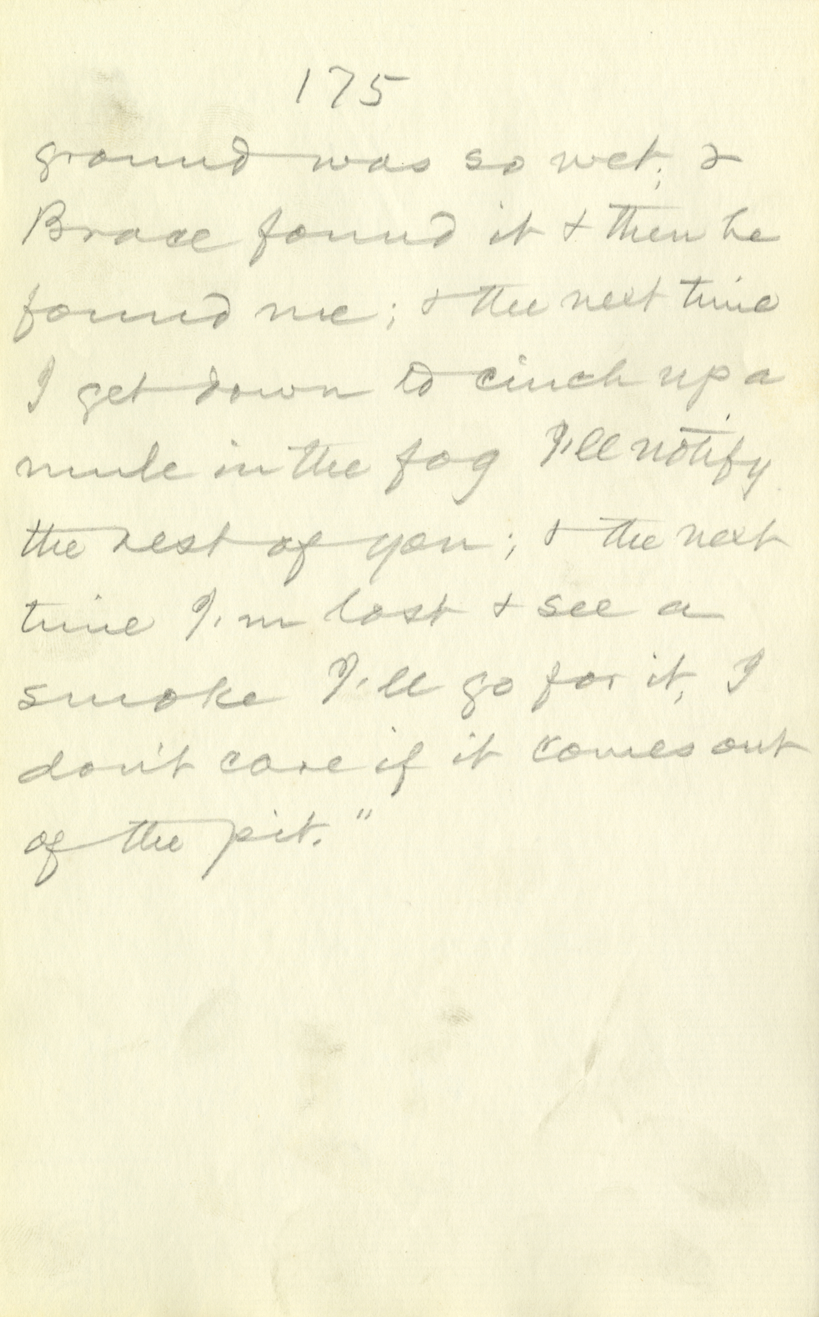 175
ground was so wet; &
Brace found it & then he
found me; & the next time
I get down to cinch up a
mule in the fog I'll notify
the rest of you; & the next
time I'm lost & see a
smoke I'll go for it, I
don't care if it comes out
of the pit."